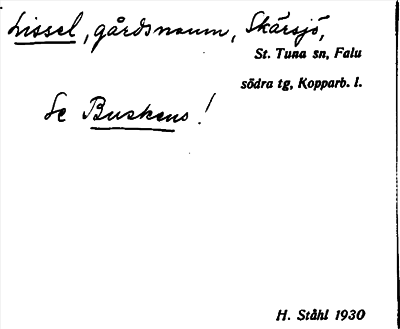 Lissel, gårdsnamn, Skärsjö,
St. Tuna sn, Falu
södra tg, Kopparb. l.
Se Buskens!
H. Ståhl 1930